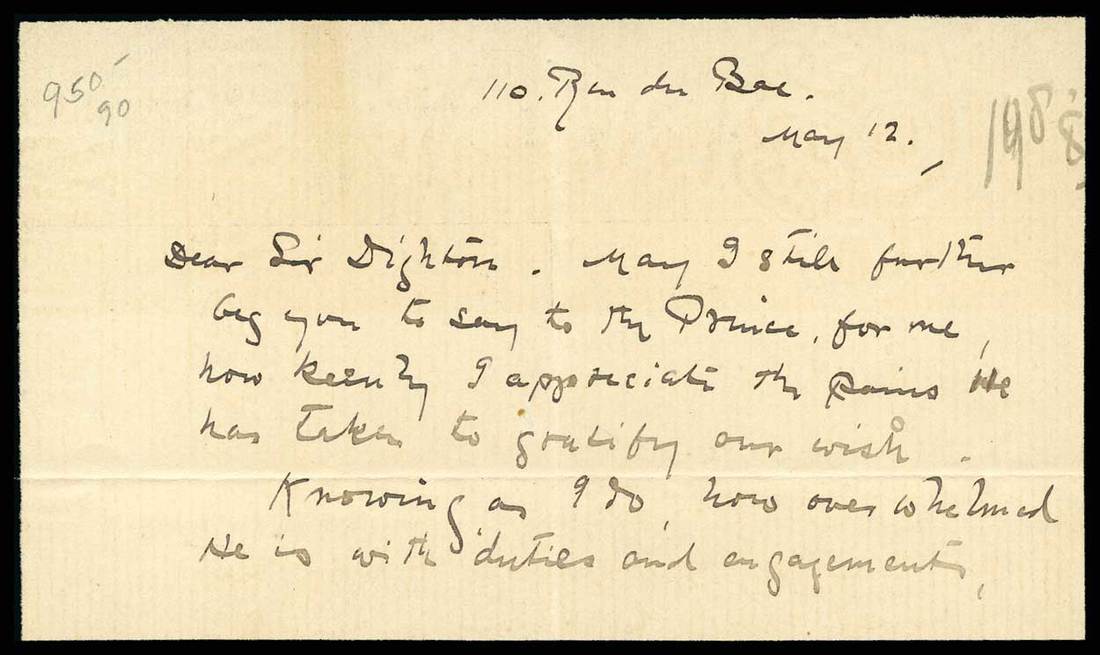 950-
90
110. Rue du Bac.
May 12.
Dear Sir Dighton. May I still further
beg you to say to the Prince, for me,
how keenly I appreciate the pains He
has taken to gratify our wish.
Knowing, as I do, how overwhelmed
He is with duties and engagements,